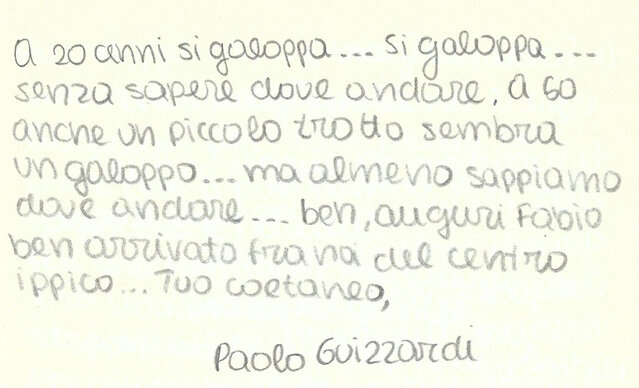 A 20 anni si galoppa... si galoppa...
senza sapere dove andare, A 60
anche un piccolo trotto sembra
un galoppo... ma almeno sappiamo
dove andare... ben, auguri Fabio
ben arrivato fra noi del centro
ippico... Tuo coetaneo,
Paolo Guizzardi